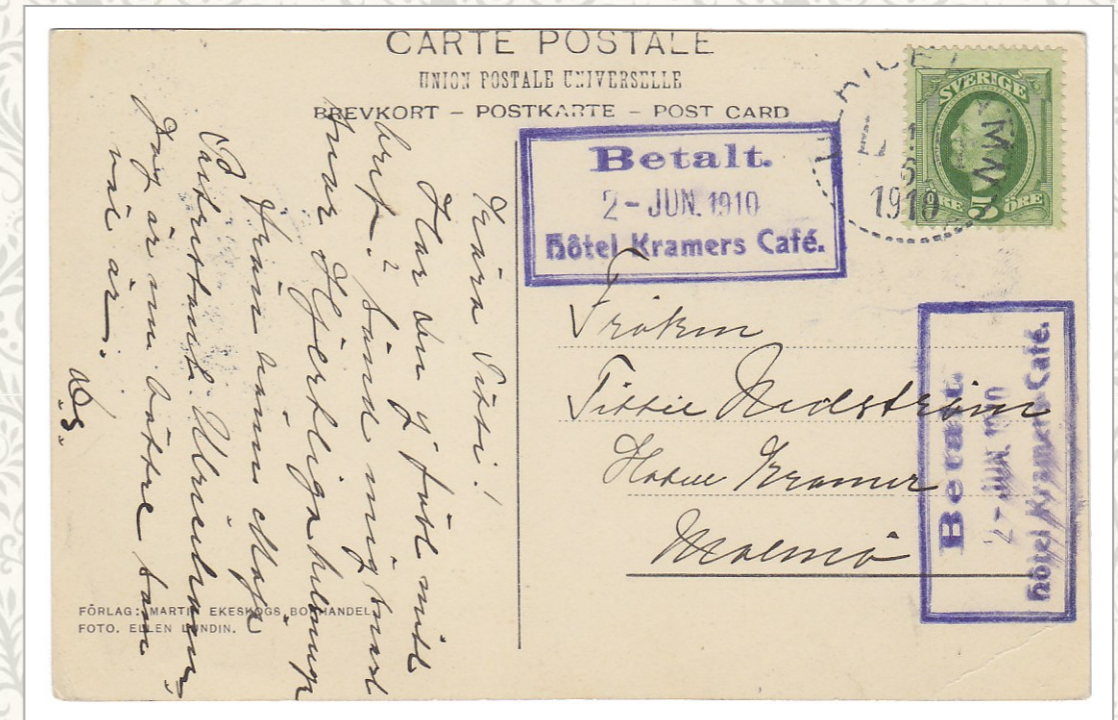 CARTE POSTALE
UNION POSTALE UNIVERSELLE
BREVKORT – POSTKARTE – POST CARD
SVERIGE
5
ÖRE ÖRE
1
6
1910
Betalt.
2 - JUN. 1910
Hôtel Kramers Café.
Fröken
Tittie Nedström
Hotell Kramer
Malmö
Betalt.
2 - JUN. 1910
Hôtel Kramers Café.
Kära Titti!
Har du ej fått mitt
bref? Sänd mig snart
svar. Hjertliga
från
Ulricehamn
Jag är nu bättre
när
FÖRLAG: MARTIN EKESKOGS BOKHANDEL
FOTO. ELLEN LUNDIN.